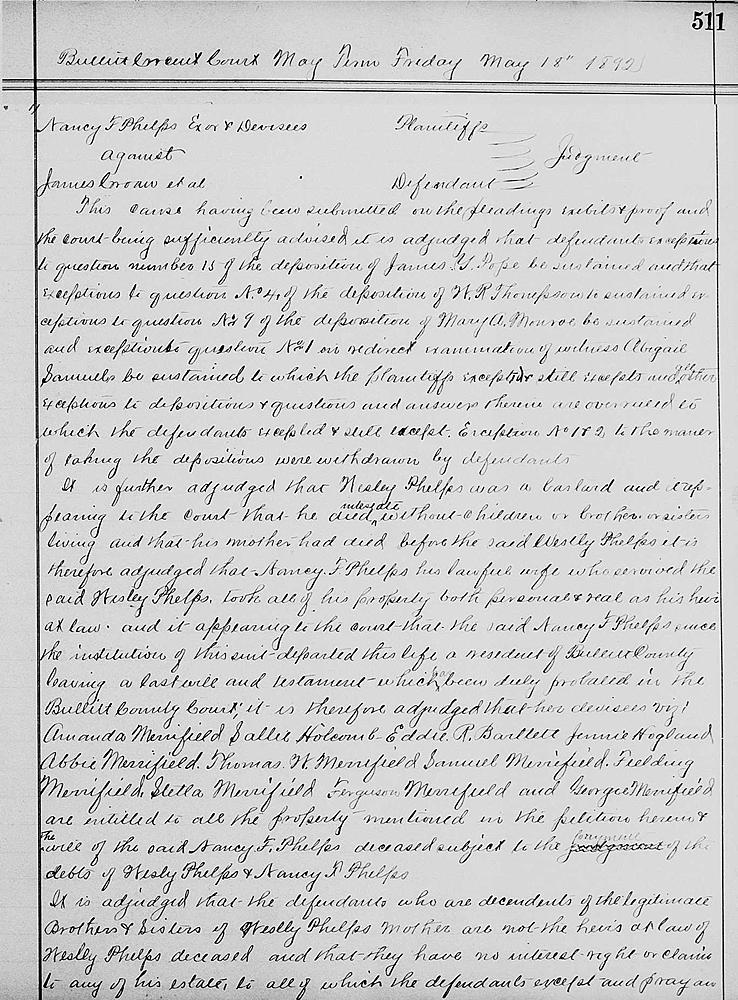 511
Bullitt Circuit Court May Term Friday May 18" 1892
Nancy F Phelps Exor & Devisees Plaintiffs
against Judgment
James Croan et al Defendant
This cause having been submitted on the pleadings exibits & proof and
the court being sufficiently advised it is adjudged that defendants exceptions
to question number 15 of the deposition of James Y. Pope be sustained and that
exceptions to question No 4, of the deposition of W. R Thompson to sustained ex-
ceptions to question No 9 of the deposition of Mary A. Monroe be sustained
and exceptions to question No 1 on redirect examination of witness Abigail
Samuels be sustained to which the plaintiffs excepted & still excepts and all other
exceptions to depositions & questions and answers therein are overruled to
which the defendants excepted & still except. Exception No 1 & 2 to the maner
of taking the depositions were withdrawn by defendants
It is further adjudged that Wesley Phelps was a bastard and it ap-
pearing to the court that he died intestate without children or brother or sisters
living and that his mother had died before the said Westly Phelps it is
therefore adjudged that Nancy F Phelps his lawful wife who servived the
said Wesley Phelps, took all of his property both personal & real as his heir
at law. and it appearing to the court that the said Nancy F Phelps since
the institution of this suit departed this life a resedent of Bullitt County
leaving a last will and testament which has been duly probated in the
Bullitt County Court, it is therefore adjudged that her devisees viz:
Amanda Merrifield Sallie Holcomb Eddie. R. Bartlett Jennie Hogland
Abbie Merrifield. Thomas. W Merrifield Samuel Merrifield. Fielding
Merrifield, Stella Merrifield Ferguson Merrifield and Georgie Merrifield
are intitled to all the property mentioned in the petition herein &
The will of the said Nancy F. Phelps deceased subject to the payment of the
debts of Wesly Phelps & Nancy F Phelps
It is adjudged that the defendants who are decendents of the legitimate
Brothers & Sisters of Weslly Phelps mother are not the heirs at law of
Weslly Phelps deceased and that they have no interest right or claim
to any of his estate, to all of which the defendants except and pray an